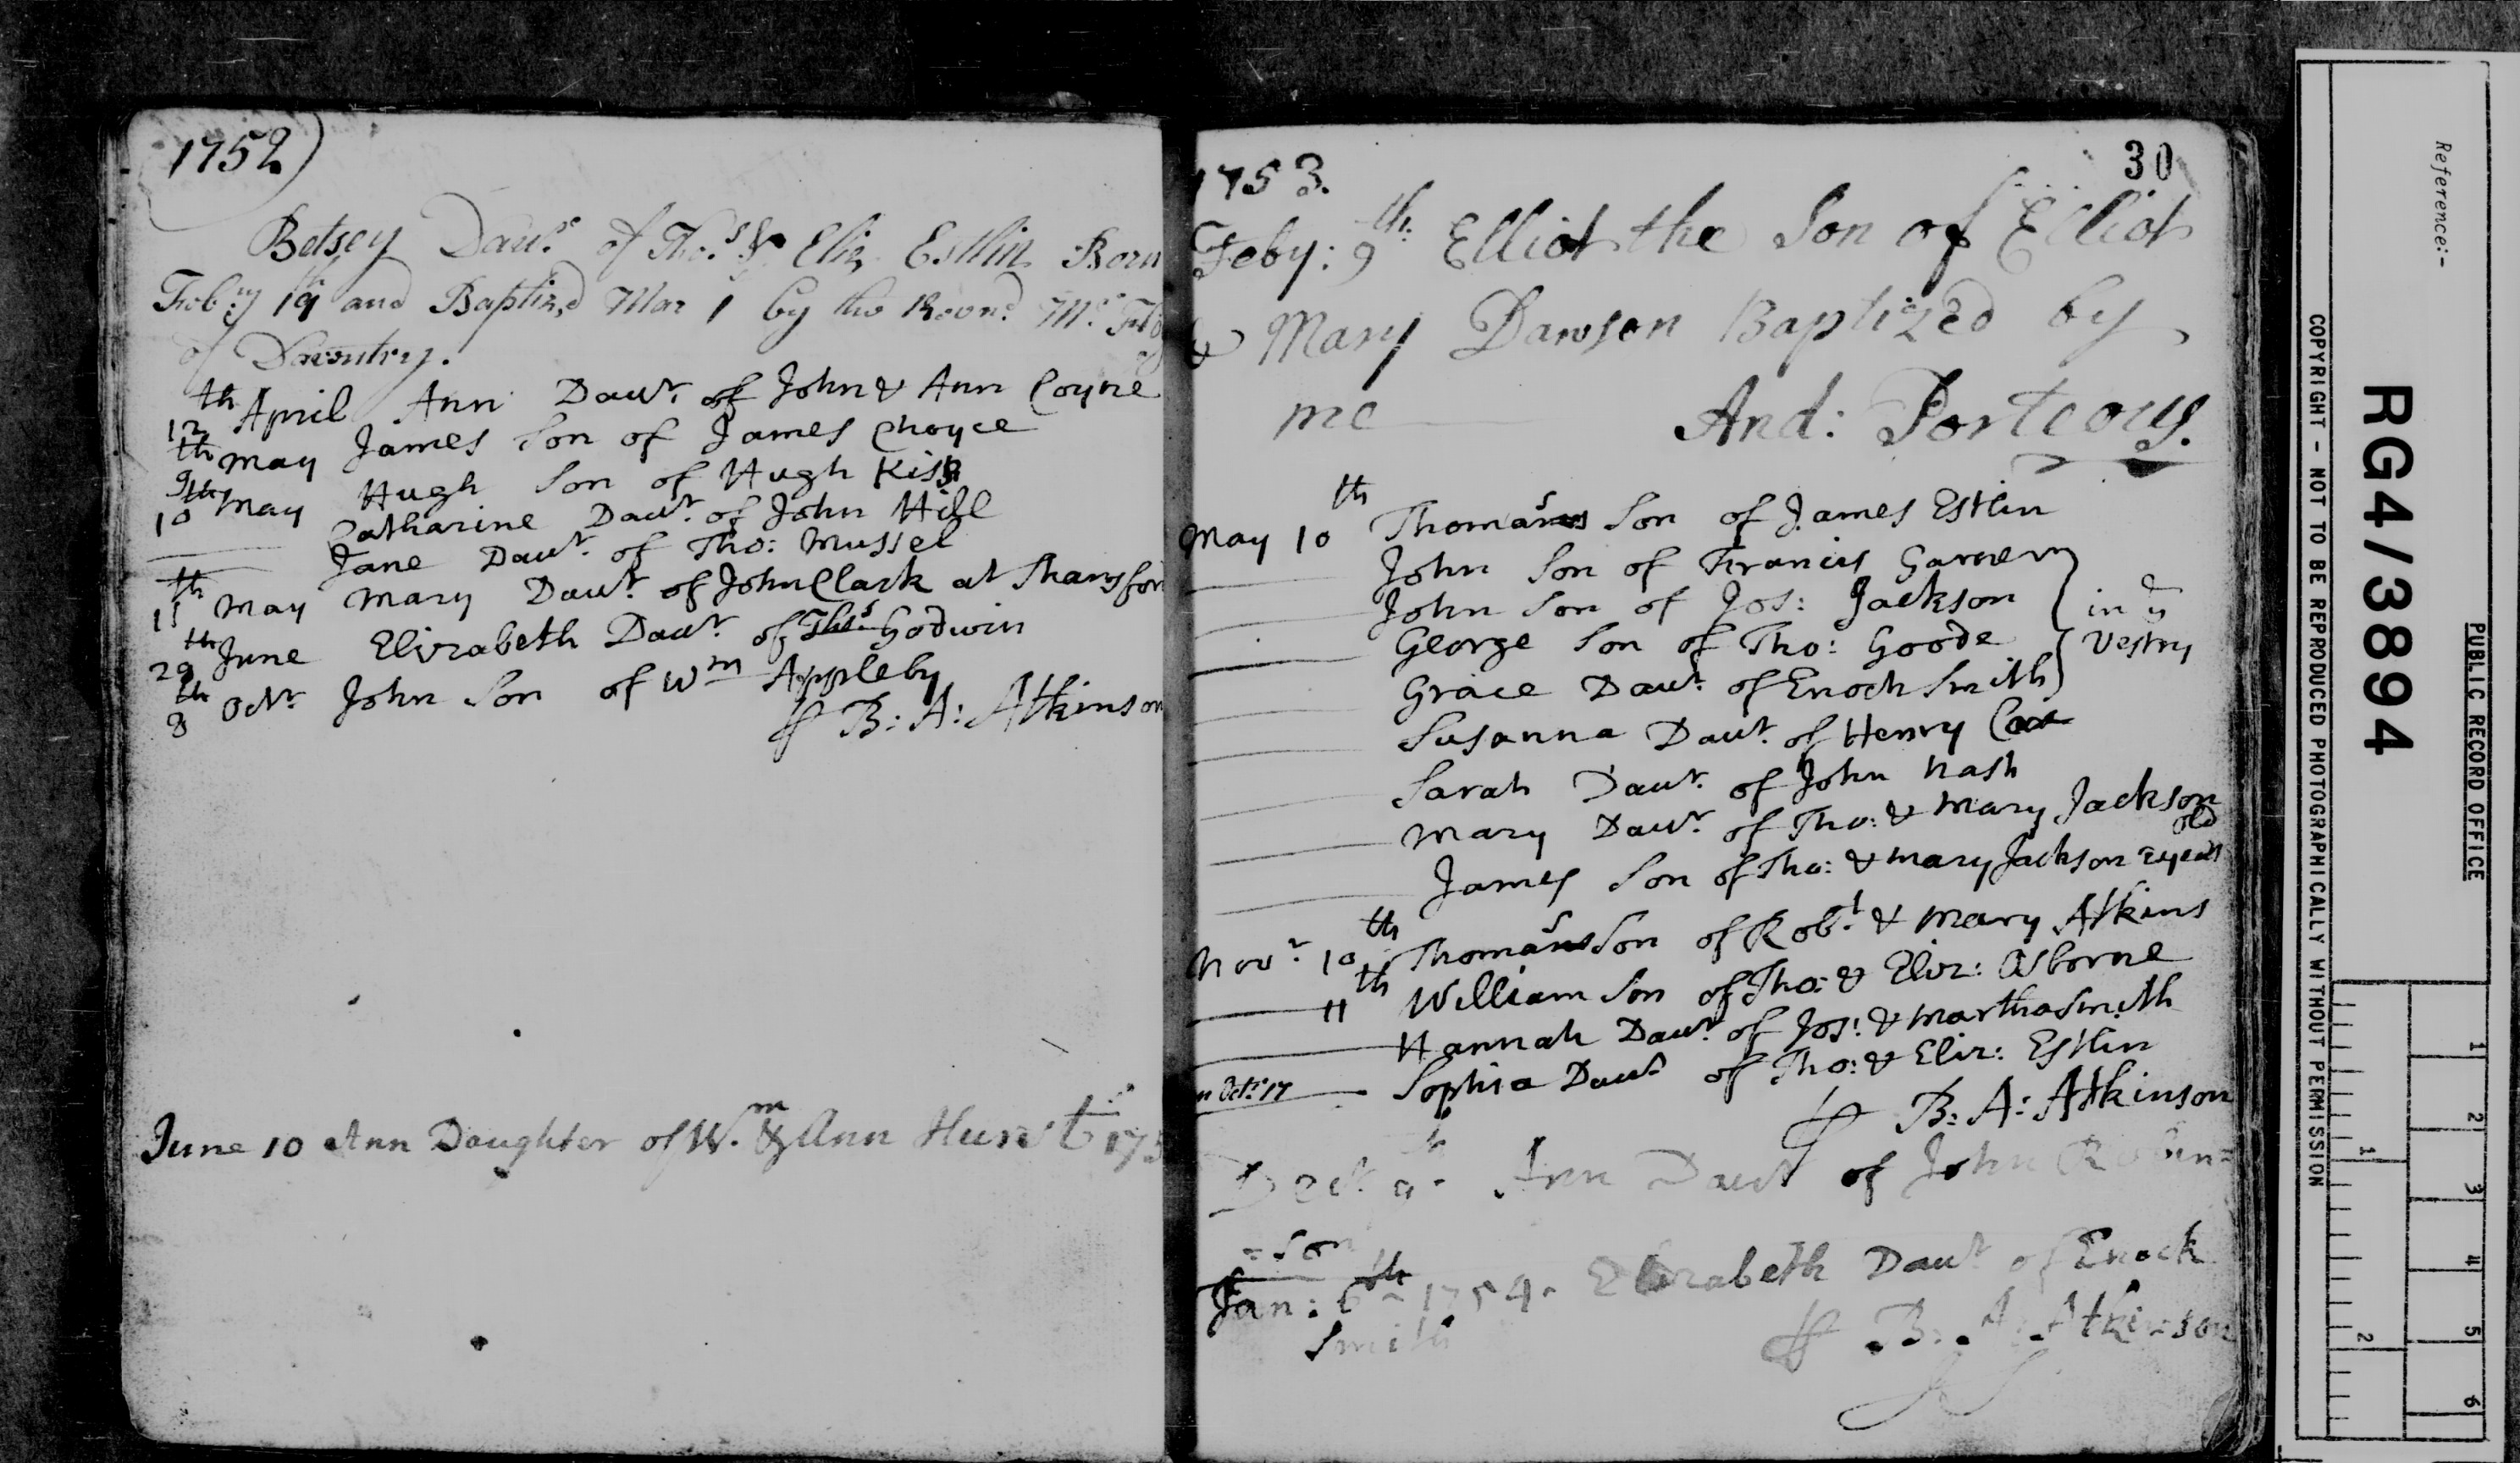 1752)
Betsey Daur. of Thos. & Eliz Estlin Born
Feb:ry 19 and Baptiz,d Mar 1 by the Revnd. Mr.
of Daventry.
12th April Ann Daur. of John & Ann Coyne
9th May James Son of James Choyce
10th May Hugh Son of Hugh Kiss
Catharine Daur. of John Hill
Jane Daur. of Tho: Mussel
11th May Mary Daur. of John Clark at
29th June Elizabeth Daur. of Thos. Godwin
8th Octr. John Son of Wm Appleby
B: A: Atkinson
June 10 Ann Daughter of Wm. & Ann Hurst 175
1753.
30
Feby: 9th: Elliot the Son of Elliot
& Mary Dawson Baptized by
me And: Porteous.
May 10th Thomas Son of James Estlin
John Son of Francis Garner
John Son of Jos: Jackson
in ye
George Son of Tho: Goode
Vestry
Grace Daur. of Enoch Smith
Susanna Daur. of Henry
Sarah Daur. of John Nash
Mary Daur. of Tho: & Mary Jackson
James Son of Tho: & Mary Jackson 2 years old
Novr. 10th Thomas Son of Robt. & Mary Atkins
11th William Son of Tho: & Eliz: Osborne
Hannah Daur. of Jos: & Martha Smith
n Octr. 17 Sophia Daur. of Tho: & Eliz: Estlin
B: A: Atkinson
Decr. 9th Ann Daur of John Robin=
=son
Jan: 6th 1754. Elizabeth Daur of Enock
Smith B: A: Atkinson
Reference:-
PUBLIC RECORD OFFICE
RG4/3894
COPYRIGHT - NOT TO BE REPRODUCED PHOTOGRAPHICALLY WITHOUT PERMISSION
1 2 3 4 5 6
1 2